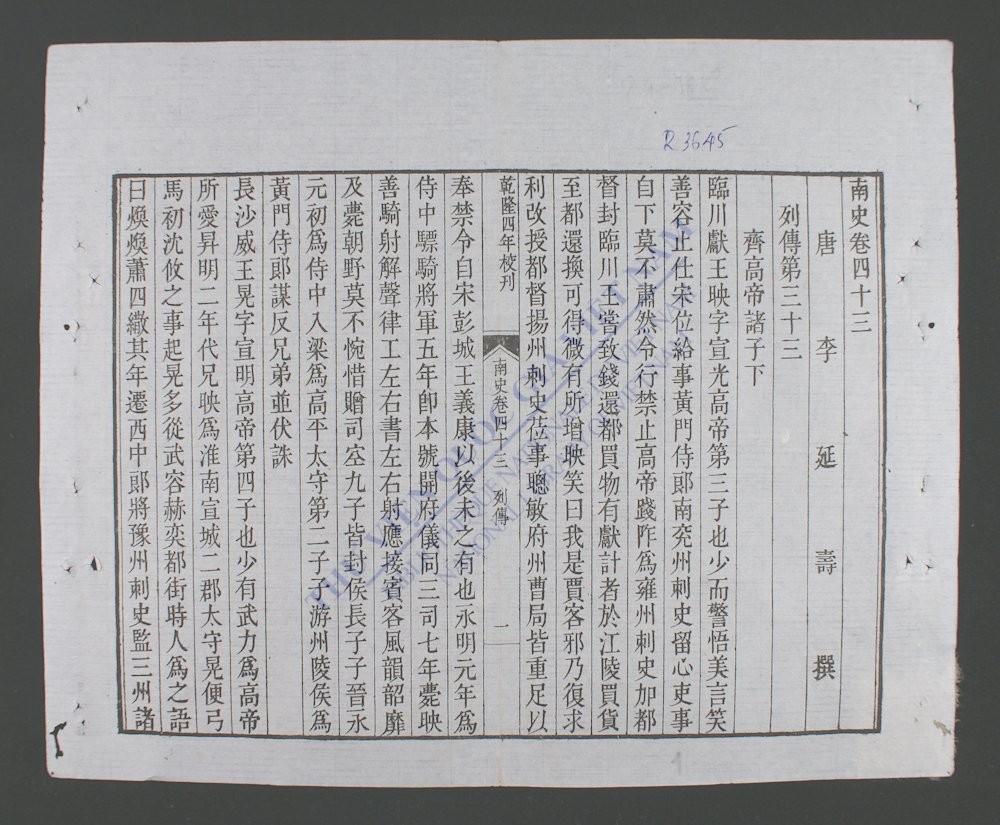 R 3645
南史卷四十三
唐 李 延 壽 撰
列傳第三十三
齊高帝諸子下
臨川獻王映字宣光高帝第三子也少而警悟美言笑
善容止仕宋位給事黃門侍郎南兗州刺史留心吏事
自下莫不肅然令行禁止高帝踐阼爲雍州刺史加都
督封臨川王嘗致錢還都買物有獻計者於江陵買貨
至都還換可得微有所增映笑曰我是賈客邪乃復求
利改授都督揚州刺史莅事聰敏府州曹局皆重足以
乾隆四年校刊
南史卷四十三 列傳 一
奉禁令自宋彭城王義康以後未之有也永明元年爲
侍中驃騎將軍五年卽本號開府儀同三司七年薨映
善騎射解聲律工左右書左右射應接賓客風韻韶靡
及薨朝野莫不惋惜贈司空九子皆封侯長子子晉永
元初爲侍中入梁爲高平太守第二子子游州陵侯爲
黃門侍郎謀反兄弟並伏誅
長沙威王晃字宣明高帝第四子也少有武力爲高帝
所愛昇明二年代兄映爲淮南宣城二郡太守晃便弓
馬初沈攸之事起晃多從武容赫奕都街時人爲之語
曰煥煥蕭四繖其年遷西中郎將豫州刺史監三州諸
THU VIEN QUOC GIA VIET NAM